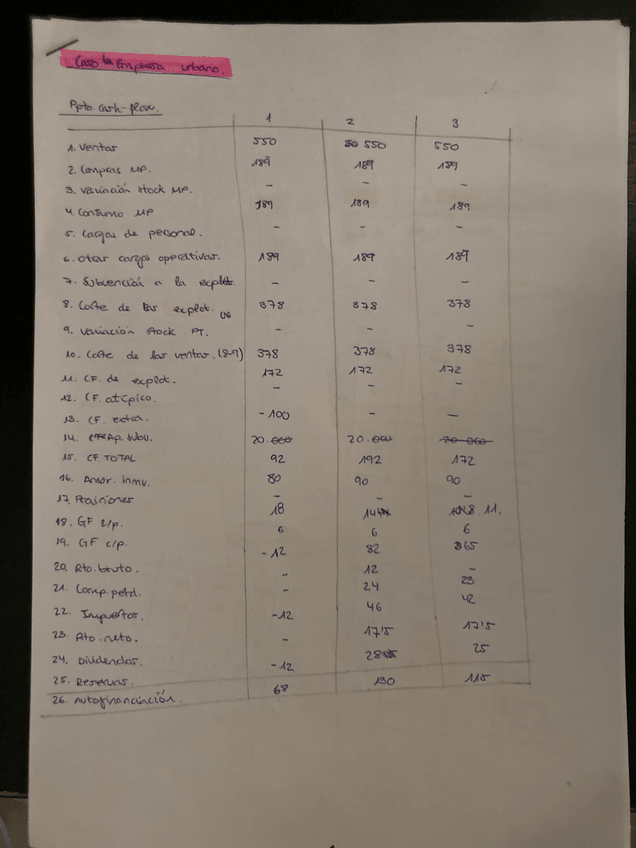 Caso la Empresa urbano.
Ppto. cash-flow.
1 2 3
1. Ventas 550 550 550
2. Compras MP. 189 189 189
3. Variación stock MP. - - -
4. Consumo MP 189 189 189
5. Cargas de personal. - - -
6. Otras cargas operativas. 189 189 189
7. Subvención a la explot. - - -
8. Coste de las explot. 378 378 378
9. Variación stock PT. - - -
10. Coste de las ventas. (8-9) 378 378 378
11. CF. de explot. 172 172 172
12. CF. atípico. - - -
13. CF. extra. -100 - -
14. Ap. subv. 20.000 20.000 20.000
15. CF. TOTAL 92 192 172
16. Amor. inmv. 80 90 90
17. Provisiones - - -
18. GF l/p. 18 14 11.
19. GF c/p. 6 6 6
20. Rto. bruto. -12 82 65
21. Comp. petd. - 12 -
22. Impuestos. - 24 23
23. Rto. neto. -12 46 42
24. Dividendos. - 17'5 17'5
25. Reservas. -12 28'5 25
26. Autofinanciación. 68 130 115